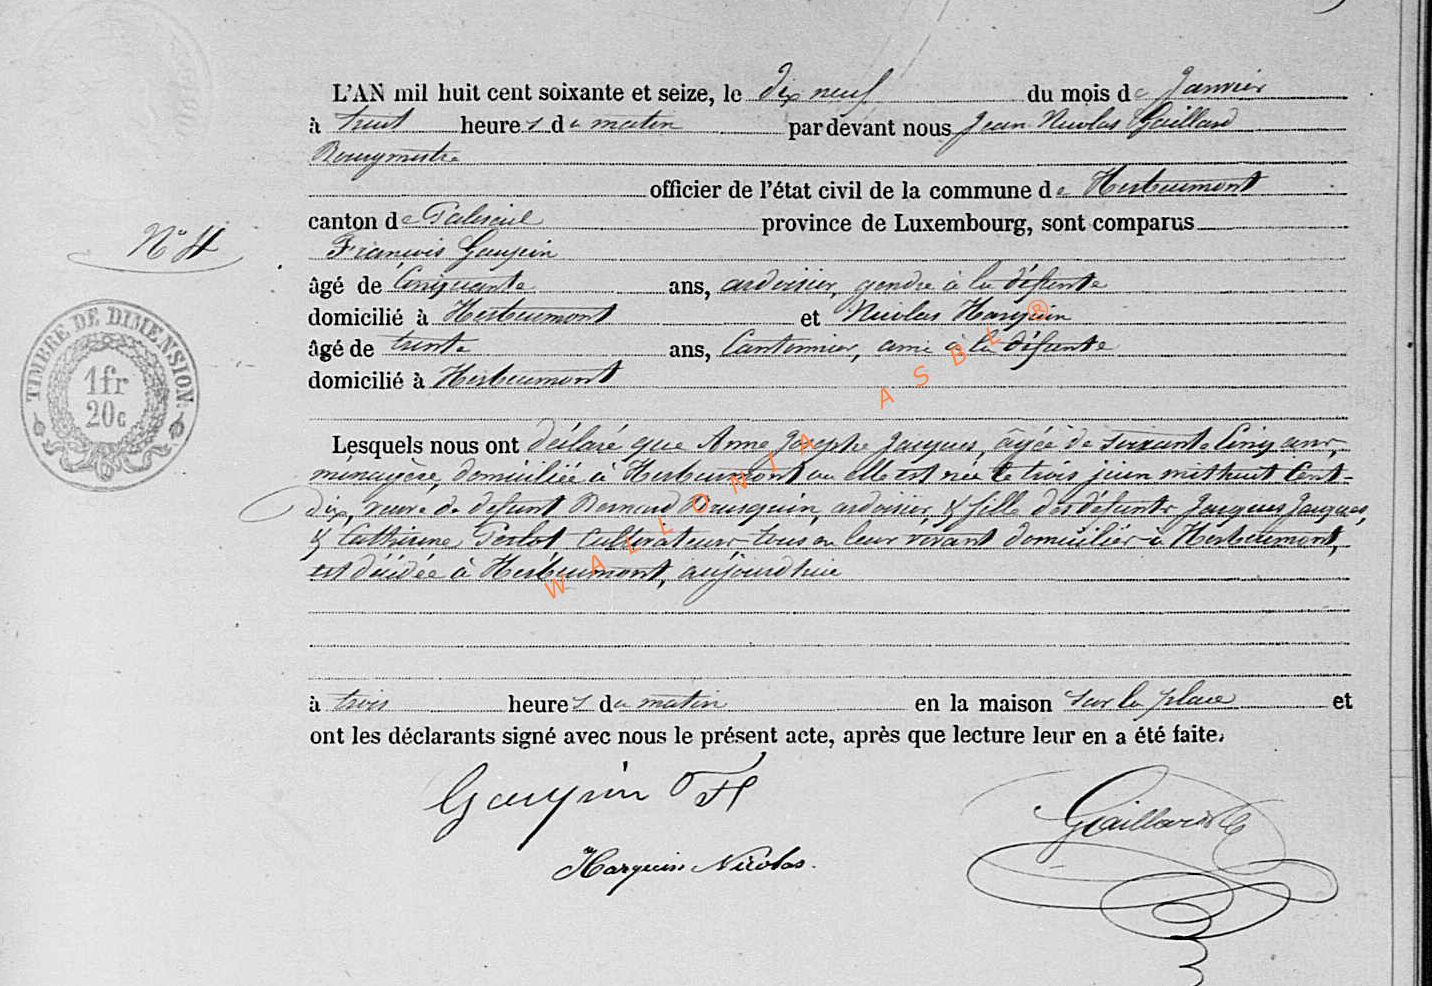 L'AN mil huit cent soixante et seize, le dix neuf du mois de Janvier
à huit heures du matin pardevant nous Jean Nicolas Gaillard
Bourgmestre
officier de l'état civil de la commune de Herbeumont
canton de Paliseul province de Luxembourg, sont comparus
N° 4
François Gaupin
âgé de Cinquante ans, ardoisier, gendre à la défunte
domicilié à Herbeumont et Nicolas Harquin
âgé de trente ans, Cantonnier, ami à la défunte
domicilié à Herbeumont
TIMBRE DE DIMENSION
1fr
20c
Lesquels nous ont déclaré que Anne Josephe Jacques, âgée de soixante Cinq ans,
ménagère, domiciliée à Herbeumont ou elle est née le trois juin mil huit Cent-
dix, veuve de defunt Bernard Brusquin, ardoisier, & fille des défunts Jacques Jacques,
& Catherine Perlot Cultivateurs tous en leur vivant domiciliés à Herbeumont,
est décédée à Herbeumont, aujourd'hui
à trois heures du matin en la maison sur la place et
ont les déclarants signé avec nous le présent acte, après que lecture leur en a été faite.
Gaupin F
Gaillard
Harquin Nicolas.
WALLONIA ASBL ®